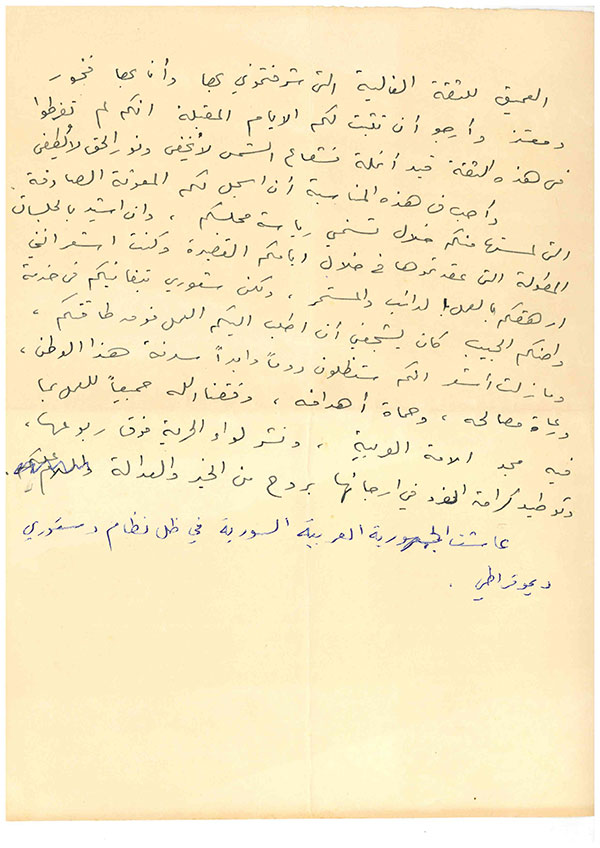 العميق للثقة الغالية التى شرفتمونى بها وأنا بها فخور
ومعتز وأرجو أن تثبت لكم الايام المقبلة انكم لم تفرطوا
فى هذه الثقة قيد أنملة فشعاع الشمس لايخفى ونور الحق لايطفى
وأحب فى هذه المناسبة أن اسجل لكم المعونة الصادقة
التى لمستها منكم خلال تسنمي رياسة مجلسكم ، وان اشيد بالجلسات
المطولة التى عقدتموها فى خلال ايامكم القصيرة وكنت اشعر انني
ارهقكم بالعمل الدائب والمستمر ، ولكن شعوري بتفانيكم فى خدمة
وطنكم الحبيب كان يشجعني أن اطلب اليكم العمل فوق طاقتكم ،
وما زلت أشعر انكم ستظلون دوماً وابداً سدنة هذا الوطن ،
ورعاة مصالحه ، وحماة أهدافه ، وفقنا الله جميعاً للعمل بما
فيه مجد الامة العربية ، ونشر لواء الحرية فوق ربوعها ،
وتوطيد كرامة الفرد في ارجائها بروح من الخير والعدالة والسلام
عاشت الجمهورية العربية السورية في ظل نظام دستوري
ديموقراطي .